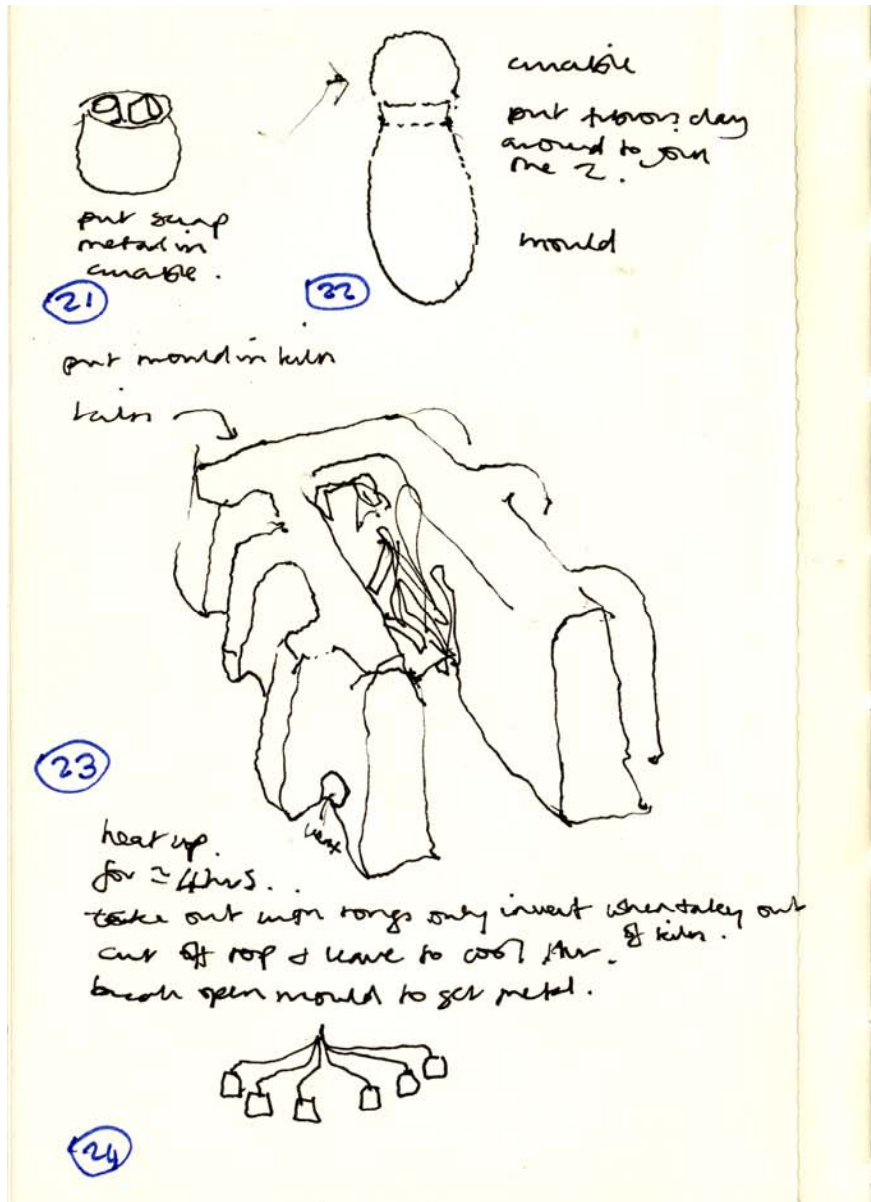 crucible
put fibrous clay
around to join
the 2.
mould
put scrap
metal in
crucible.
21
22
put mould in kiln
kiln
23
heat up
for ≈ 4hrs..
take out with tongs only invert when taken out
of kiln.
cut off top & leave to cool 1hr.
break open mould to get metal.
24